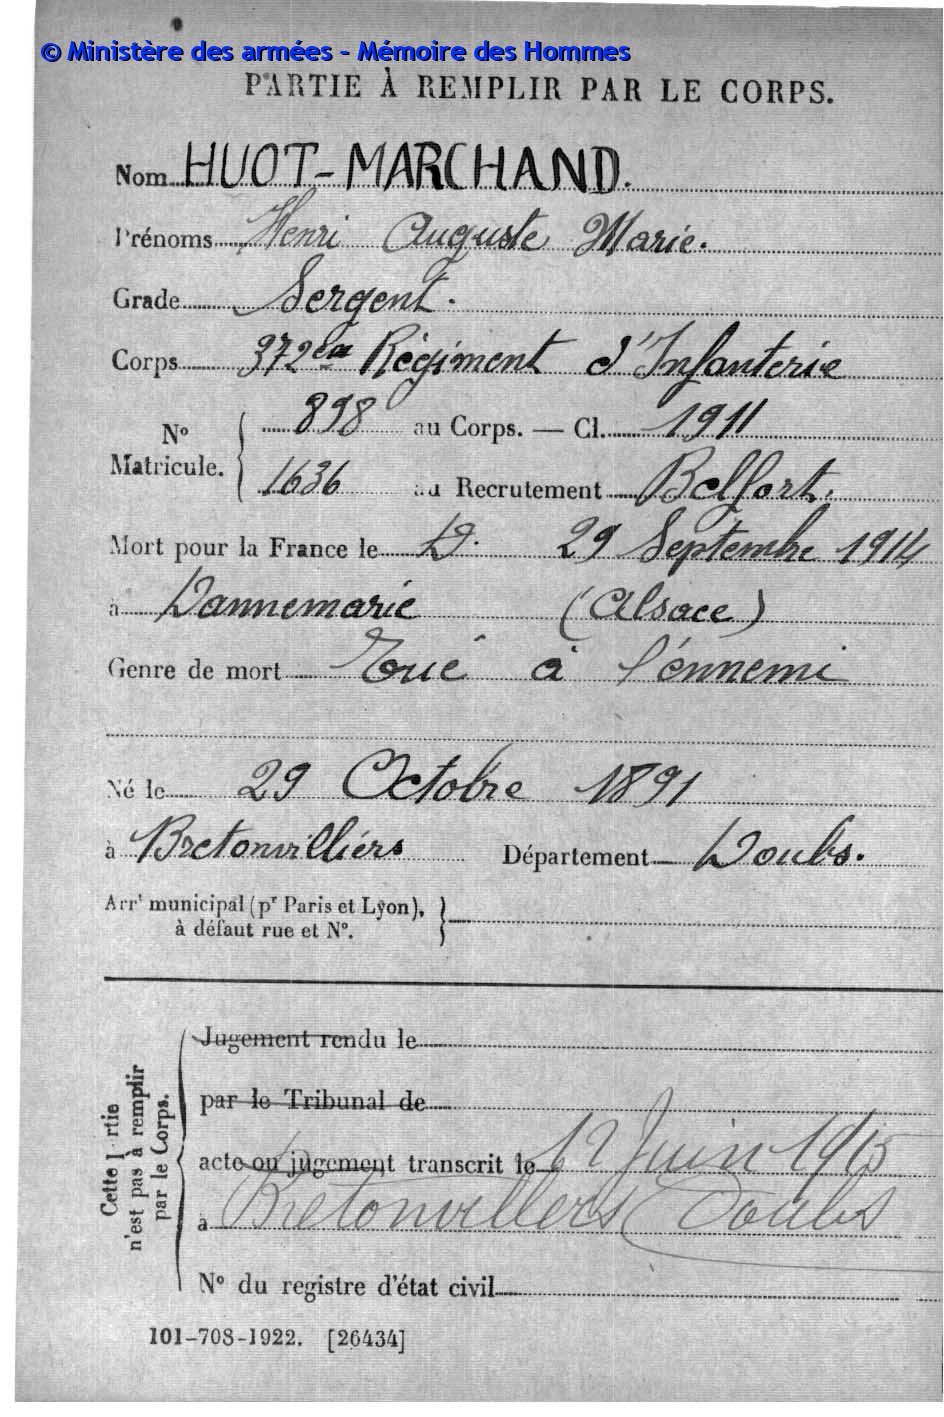 © Ministère des armées - Mémoire des Hommes
PARTIE À REMPLIR PAR LE CORPS.
Nom HUOT-MARCHAND.
Prénoms Henri Auguste Marie.
Grade Sergent.
Corps 372eme Régiment d'Infanterie
N° Matricule. { 898 au Corps. — Cl. 1911
1636 au Recrutement Belfort.
Mort pour la France le D. 29 Septembre 1914
à Dannemarie (Alsace)
Genre de mort Tué à l'énnemi
Né le 29 Octobre 1891
à Bretonvilliérs Département Doubs.
Arrt municipal (pr Paris et Lyon),
à défaut rue et N°.
Cette partie
n'est pas à remplir
par le Corps.
Jugement rendu le
par le Tribunal de
acte ou jugement transcrit le 12 Juin 1915
à Bretonvillers Doubs
N° du registre d'état civil
101-708-1922. [26434]